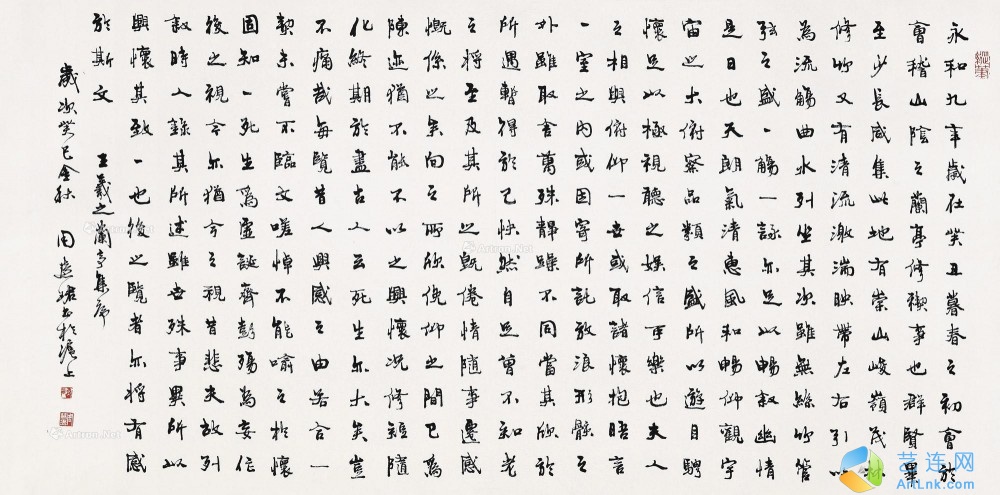 永和九年歲在癸丑暮春之初會於
會稽山陰之蘭亭修禊事也群賢畢
至少長咸集此地有崇山峻嶺茂林
修竹又有清流激湍映帶左右引以
為流觴曲水列坐其次雖無絲竹管
弦之盛一觴一詠亦足以暢敘幽情
是日也天朗氣清惠風和暢仰觀宇
宙之大俯察品類之盛所以遊目騁
懷足以極視聽之娛信可樂也夫人
之相與俯仰一世或取諸懷抱晤言
一室之內或因寄所託放浪形骸之
外雖取舍萬殊靜躁不同當其欣於
所遇暫得於己快然自足曾不知老
之將至及其所之既倦情隨事遷感
慨係之矣向之所欣俛仰之間已為
陳迹猶不能不以之興懷況修短隨
化終期於盡古人云死生亦大矣豈
不痛哉每覽昔人興感之由若合一
契未嘗不臨文嗟悼不能喻之於懷
固知一死生爲虛誕齊彭殤為妄作
後之視今亦猶今之視昔悲夫故列
敘時人錄其所述雖世殊事異所以
興懷其致一也後之覽者亦將有感
於斯文 王羲之蘭亭集序
歲次癸巳金秋 周 書於滬上
Artron.Net
艺连网
ArtLnk.com